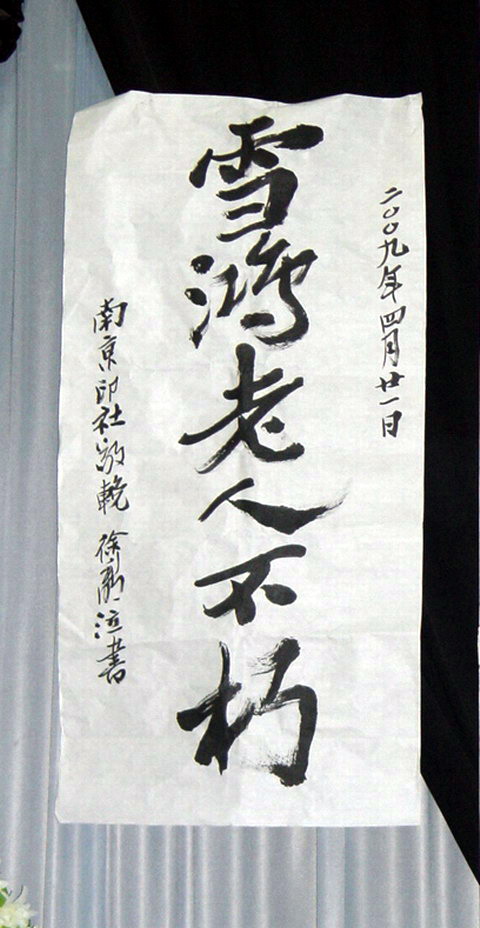 二〇〇九年四月廿一日
雪鸿老人不朽
南京印社敬輓 徐 泣書